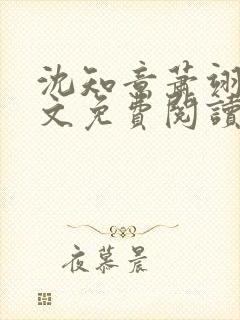 沈知音萧翊
文免費閱讀
夜慕晨